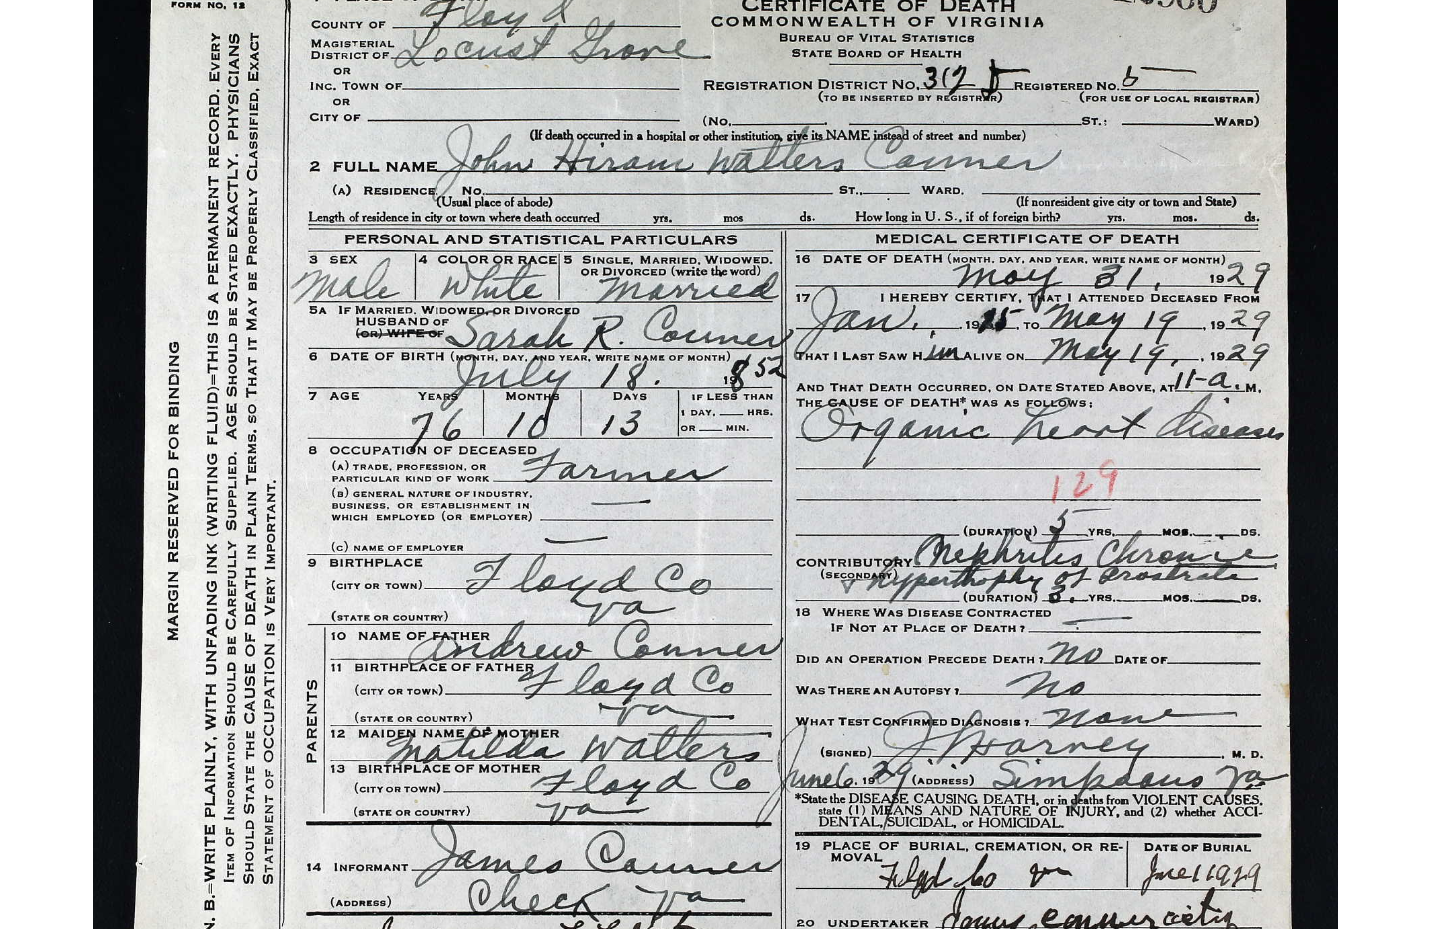 FORM NO. 12
MARGIN RESERVED FOR BINDING
N. B.=WRITE PLAINLY, WITH UNFADING INK (WRITING FLUID)=THIS IS A PERMANENT RECORD. EVERY
ITEM OF INFORMATION SHOULD BE CAREFULLY SUPPLIED. AGE SHOULD BE STATED EXACTLY. PHYSICIANS
SHOULD STATE THE CAUSE OF DEATH IN PLAIN TERMS. SO THAT IT MAY BE PROPERLY CLASSIFIED. EXACT
STATEMENT OF OCCUPATION IS VERY IMPORTANT.
COUNTY OF Floyd
MAGISTERIAL DISTRICT OF Locust Grove
OR
INC. TOWN OF
OR
CITY OF
CERTIFICATE OF DEATH
COMMONWEALTH OF VIRGINIA
BUREAU OF VITAL STATISTICS
STATE BOARD OF HEALTH
REGISTRATION DISTRICT NO. 312 REGISTERED NO. 5
(TO BE INSERTED BY REGISTRAR) (FOR USE OF LOCAL REGISTRAR)
(NO. ST.: WARD)
(If death occurred in a hospital or other institution, give its NAME instead of street and number)
2 FULL NAME John Hiram Walters Conner
(A) RESIDENCE. NO. ST., WARD.
(Usual place of abode) (If nonresident give city or town and State)
Length of residence in city or town where death occurred yrs. mos ds. How long in U. S., if of foreign birth? yrs. mos. ds.
PERSONAL AND STATISTICAL PARTICULARS
3 SEX 4 COLOR OR RACE 5 SINGLE, MARRIED, WIDOWED. OR DIVORCED (write the word)
Male White Married
5A IF MARRIED, WIDOWED, OR DIVORCED
HUSBAND OF
(OR) WIFE OF Sarah R. Conner
6 DATE OF BIRTH (MONTH, DAY, AND YEAR, WRITE NAME OF MONTH)
July 18. 1852
7 AGE YEARS MONTHS DAYS IF LESS THAN
1 DAY, HRS.
OR MIN.
76 10 13
8 OCCUPATION OF DECEASED
(A) TRADE, PROFESSION, OR
PARTICULAR KIND OF WORK Farmer
(B) GENERAL NATURE OF INDUSTRY,
BUSINESS, OR ESTABLISHMENT IN
WHICH EMPLOYED (OR EMPLOYER)
(C) NAME OF EMPLOYER
9 BIRTHPLACE
(CITY OR TOWN) Floyd Co
(STATE OR COUNTRY) Va
PARENTS
10 NAME OF FATHER
Andrew Conner
11 BIRTHPLACE OF FATHER
(CITY OR TOWN) Floyd Co
(STATE OR COUNTRY) Va
12 MAIDEN NAME OF MOTHER
Matilda Walters
13 BIRTHPLACE OF MOTHER
(CITY OR TOWN) Floyd Co
(STATE OR COUNTRY) Va
14 INFORMANT James Conner
(ADDRESS) Check Va
MEDICAL CERTIFICATE OF DEATH
16 DATE OF DEATH (MONTH, DAY, AND YEAR, WRITE NAME OF MONTH)
May 31, 1929
17 I HEREBY CERTIFY, THAT I ATTENDED DECEASED FROM
Jan. , 19 , TO May 19 , 1929
THAT I LAST SAW HIM ALIVE ON May 19, , 1929
AND THAT DEATH OCCURRED, ON DATE STATED ABOVE, AT 11-a. M.
THE CAUSE OF DEATH* WAS AS FOLLOWS:
Organic heart diseases
129
(DURATION) 5 YRS. MOS. DS.
CONTRIBUTORY Nephritis Chronic
(SECONDARY) & hypertrophy of Prostrate
(DURATION) 3. YRS. MOS. DS.
18 WHERE WAS DISEASE CONTRACTED
IF NOT AT PLACE OF DEATH?
DID AN OPERATION PRECEDE DEATH? No DATE OF
WAS THERE AN AUTOPSY? No
WHAT TEST CONFIRMED DIAGNOSIS? None
(SIGNED) J Harvey , M. D.
June 6. 1929 (ADDRESS) Simpsons Va
*State the DISEASE CAUSING DEATH, or in deaths from VIOLENT CAUSES,
state (1) MEANS AND NATURE OF INJURY, and (2) whether ACCI-
DENTAL, SUICIDAL, or HOMICIDAL.
19 PLACE OF BURIAL, CREMATION, OR RE- DATE OF BURIAL
MOVAL Floyd Co Va June 1 1929
20 UNDERTAKER